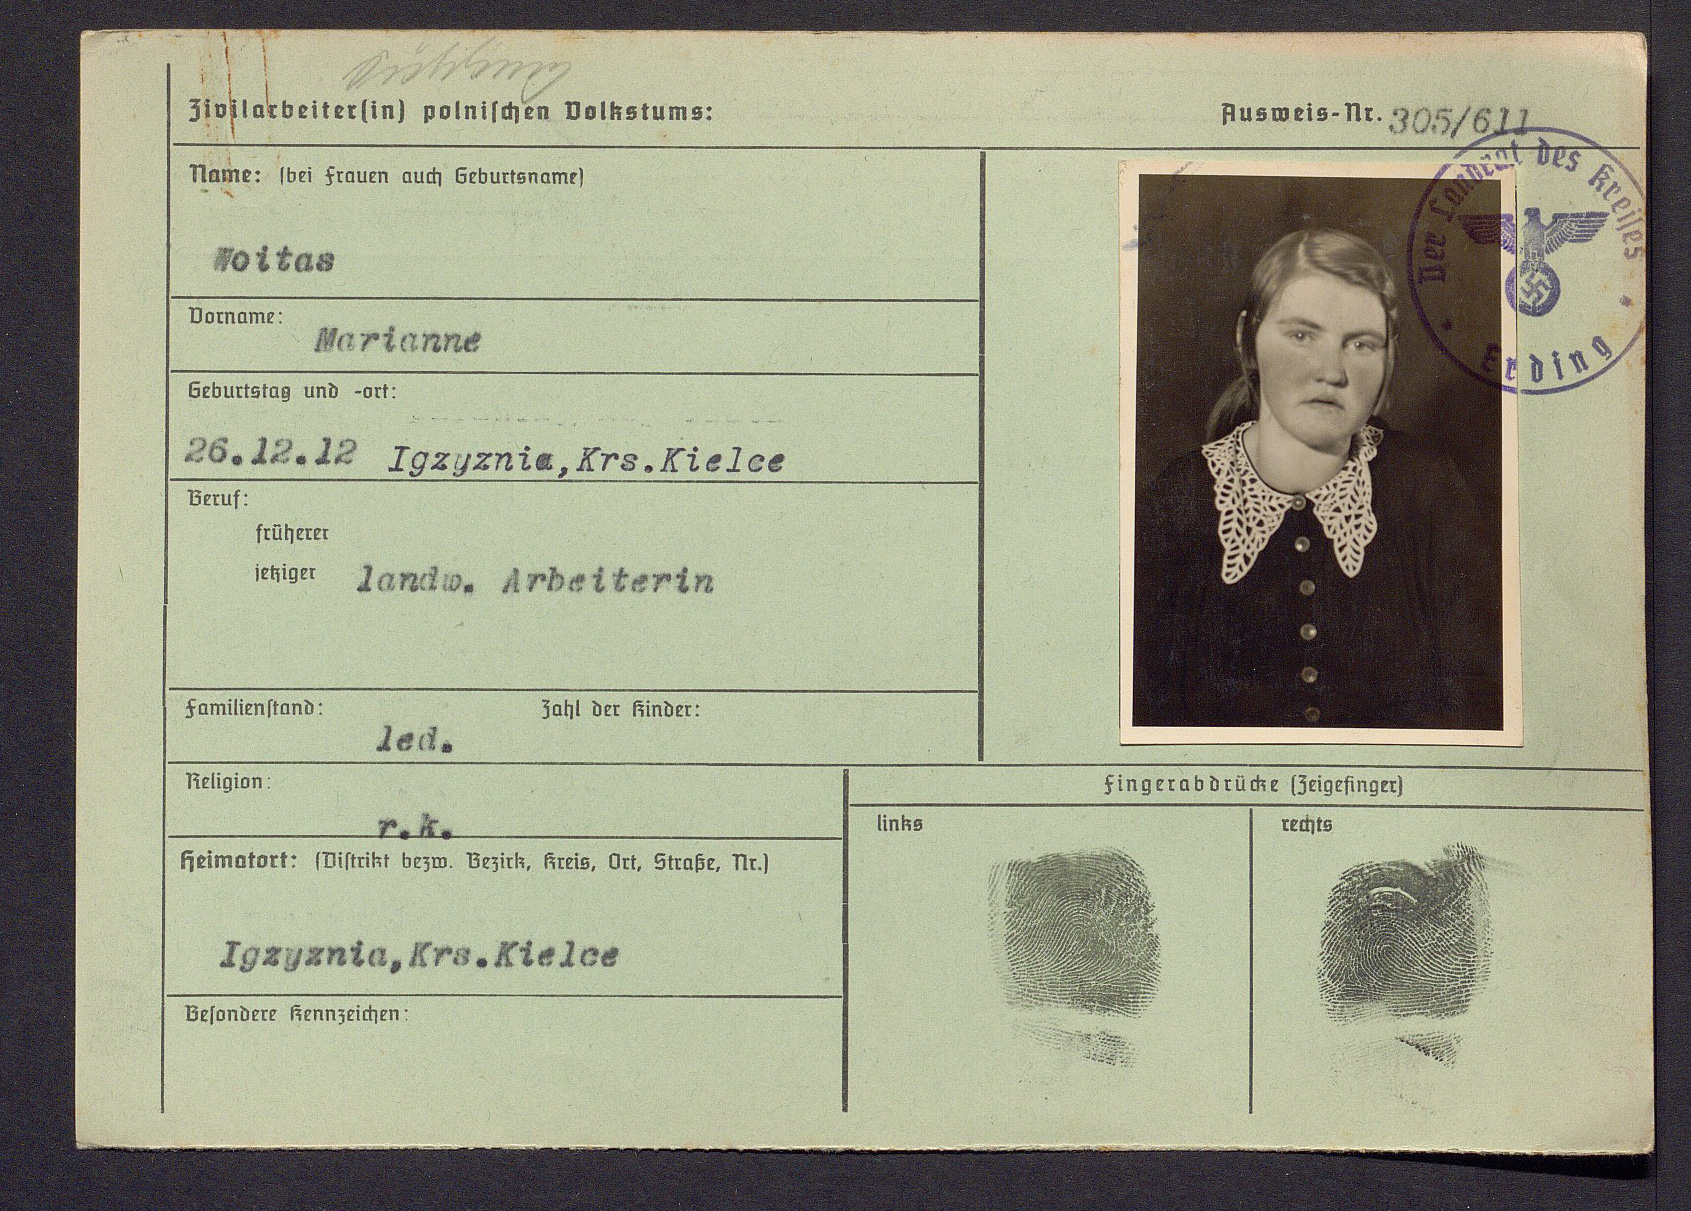 Zivilarbeiter(in) polnischen Volkstums:
Ausweis-Nr. 305/611
Name: (bei Frauen auch Geburtsname)
Woitas
Vorname:
Marianne
Geburtstag und -ort:
26.12.12 Igzyznia,Krs.Kielce
Beruf:
früherer
jetziger landw. Arbeiterin
Familienstand: Zahl der Kinder:
led.
Religion:
r.k.
Heimatort: (Distrikt bezw. Bezirk, Kreis, Ort, Straße, Nr.)
Igzyznia,Krs.Kielce
Besondere Kennzeichen:
Der Landrat des Kreises
Erding
Fingerabdrücke (Zeigefinger)
links rechts